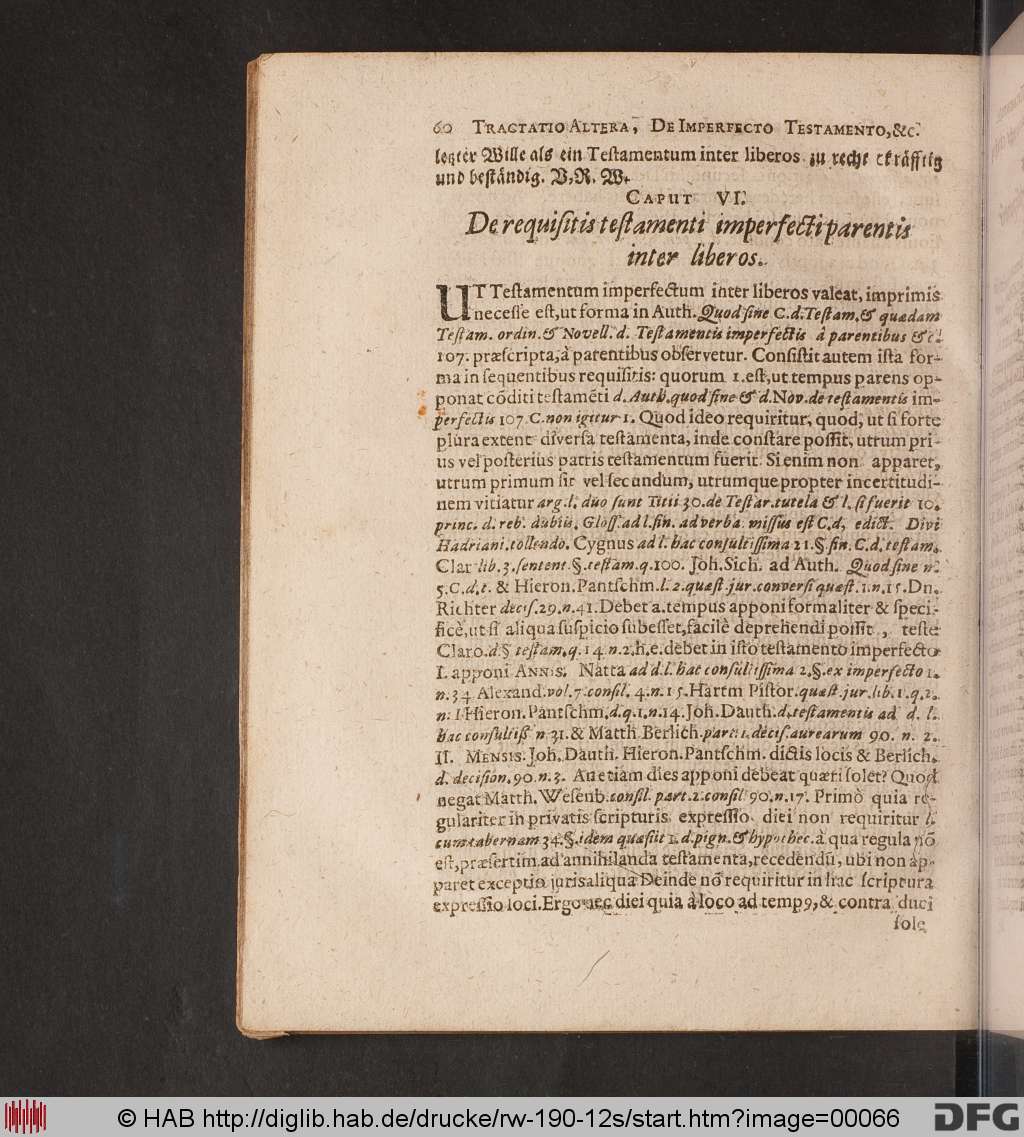 60 TRACTATIO ALTERA, DE IMPERFECTO TESTAMENTO, &c.
letzter Wille als ein Teſtamentum inter liberos zu recht ckräfftig
und beſtändig. V. R. W.
CAPUT VI.
De requiſitis teſtamenti imperfecti parentis
inter liberos.
UT Teſtamentum imperfectum inter liberos valeat, imprimis
neceſſe eſt, ut forma in Auth. Quod ſine C. d. Teſtam. & quædam
Teſtam. ordin. & Novell. d. Teſtamentis imperfectis à parentibus &c.
107. præſcripta, à parentibus obſervetur. Conſiſtit autem iſta for-
ma in ſequentibus requiſitis: quorum 1. eſt, ut tempus parens op-
ponat cõditi teſtamẽti d. Auth. quod ſine & d. Nov. de teſtamentis im-
perfectis 107. C. non igitur 1. Quod ideo requiritur, quod, ut ſi forte
plura extent diverſa teſtamenta, inde conſtare poſſit, utrum pri-
us vel poſterius patris teſtamentum fuerit. Si enim non apparet,
utrum primum ſit vel ſecundum, utrumque propter incertitudi-
nem vitiatur arg. l. duo ſunt Titii 30. de Teſtar. tutela & l. ſi fuerit 10.
princ. d. reb. dubiis. Gloſſ. ad l. fin. ad verba miſſus eſt C. d. edict. Divi
Hadriani. tollendo. Cygnus ad l. hac conſultiſſima 21. §. fin. C. d. teſtam.
Clar lib. 3. ſentent. §. teſtam. q. 100. Joh. Sich. ad Auth. Quod ſine n.
5. C. d. t. & Hieron. Pantſchm. l. 2. quæſt. jur. converſ. quæſt. 1. n. 15. Dn.
Richter deciſ. 29. n. 41. Debet a. tempus apponi formaliter & ſpeci-
ficè, ut ſi aliqua ſuſpicio ſubeſſet, facilè deprehendi poſſit, teſte
Claro. d. § teſtam. q. 14. n. 2. h. e. debet in iſto teſtamento imperfecto
I. apponi ANNIS. Natta ad d. l. hac conſultiſſima 2. §. ex imperfecto 1.
n. 34 Alexand. vol. 7. conſil. 4. n. 15. Hartm Piſtor. quæſt. jur. lib. 1. q. 2.
n. 1 Hieron. Pantſchm. d. q. 1. n. 14. Joh. Dauth. d. teſtamentis ad d. l.
hac conſultiſſ. n. 31. & Matth Berlich. part. 1. deciſ. aurearum 90. n. 2.
II. MENSIS. Joh. Dauth. Hieron. Pantſchm. dictis locis & Berlich.
d. deciſion. 90. n. 3. An etiam dies apponi debeat quæri ſolet? Quod
negat Matth. Weſenb. conſil. part. 2. conſil. 90. n. 17. Primò quia re-
gulariter in privatis ſcripturis expreſſio diei non requiritur l.
cum tabernam 34. §. idem quæſiit 1. d. pign. & hypothec. à qua regula nõ
eſt, præſertim ad annihilanda teſtamenta, recedendũ, ubi non ap-
paret exceptio juris aliqua Deinde nõ requiritur in hac ſcriptura
expreſſio loci. Ergo nec diei quia à loco ad tempꝰ, & contra duci
ſole
© HAB http://diglib.hab.de/drucke/rw-190-12s/start.htm?image=00066
DFG